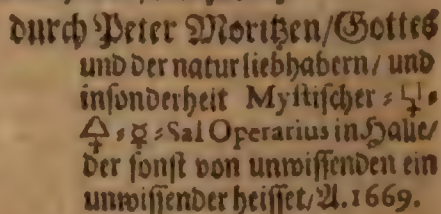 durch Peter Moritzen/Gottes
und der natur liebhabern/ und
insonderheit Mystischer ⸗ ♃ ⸗
🜍 ⸗ ☿ ⸗ Sal Operarius in Halle/
der sonst von unwissenden ein
unwissender heisset/ A. 1669.